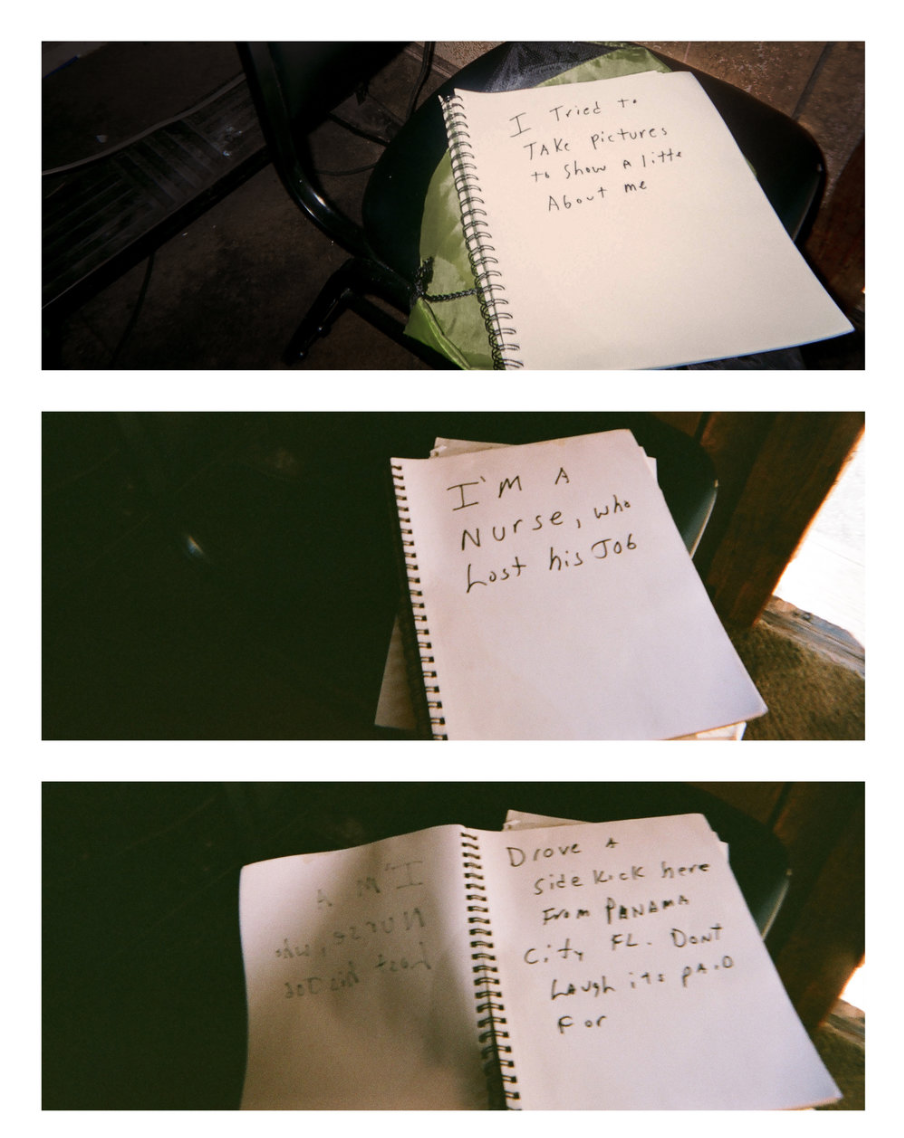 I Tried to
TAKe pictures
to Show A litte
About me
I'M A
Nurse, who
Lost his Job
I'M A
Nurse, who
Lost his Job
Drove A
side kick here
From PANAMA
City FL. DonT
LAugh its pAiD
For